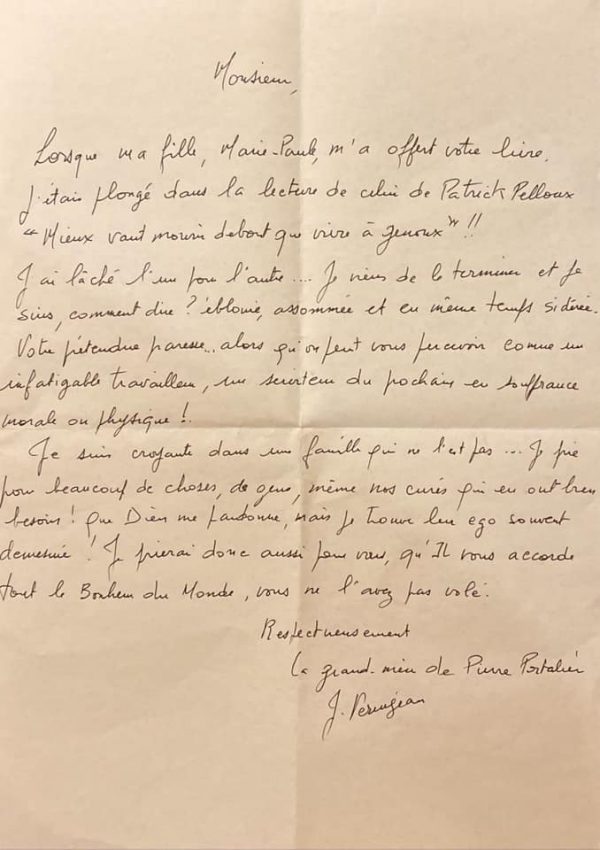 Monsieur,
Lorsque ma fille, Marie-Paule, m'a offert votre livre,
J'étais plongé dans la lecture de celui de Patrick Pelloux
"Mieux vaut mourir debout que vivre à genoux" !!
J'ai lâché l'un pour l'autre.... Je viens de le terminer et Je
suis, comment dire ? éblouie, assommée et en même temps sidérée.
Votre prétendue paresse... alors qu'on peut vous percevoir comme un
infatigable travailleur, un serviteur du prochain en souffrance
morale ou physique !
Je suis croyante dans une famille qui ne l'est pas ... Je prie
pour beaucoup de choses, de gens, même nos curés qui en ont bien
besoin ! Que Dieu me pardonne, mais je trouve leur ego souvent
démesuré ! Je prierai donc aussi pour vous, qu'Il vous accorde
tout le Bonheur du Monde, vous ne l'avez pas volé.
Respectueusement
La grand-mère de Pierre Portalier
J.